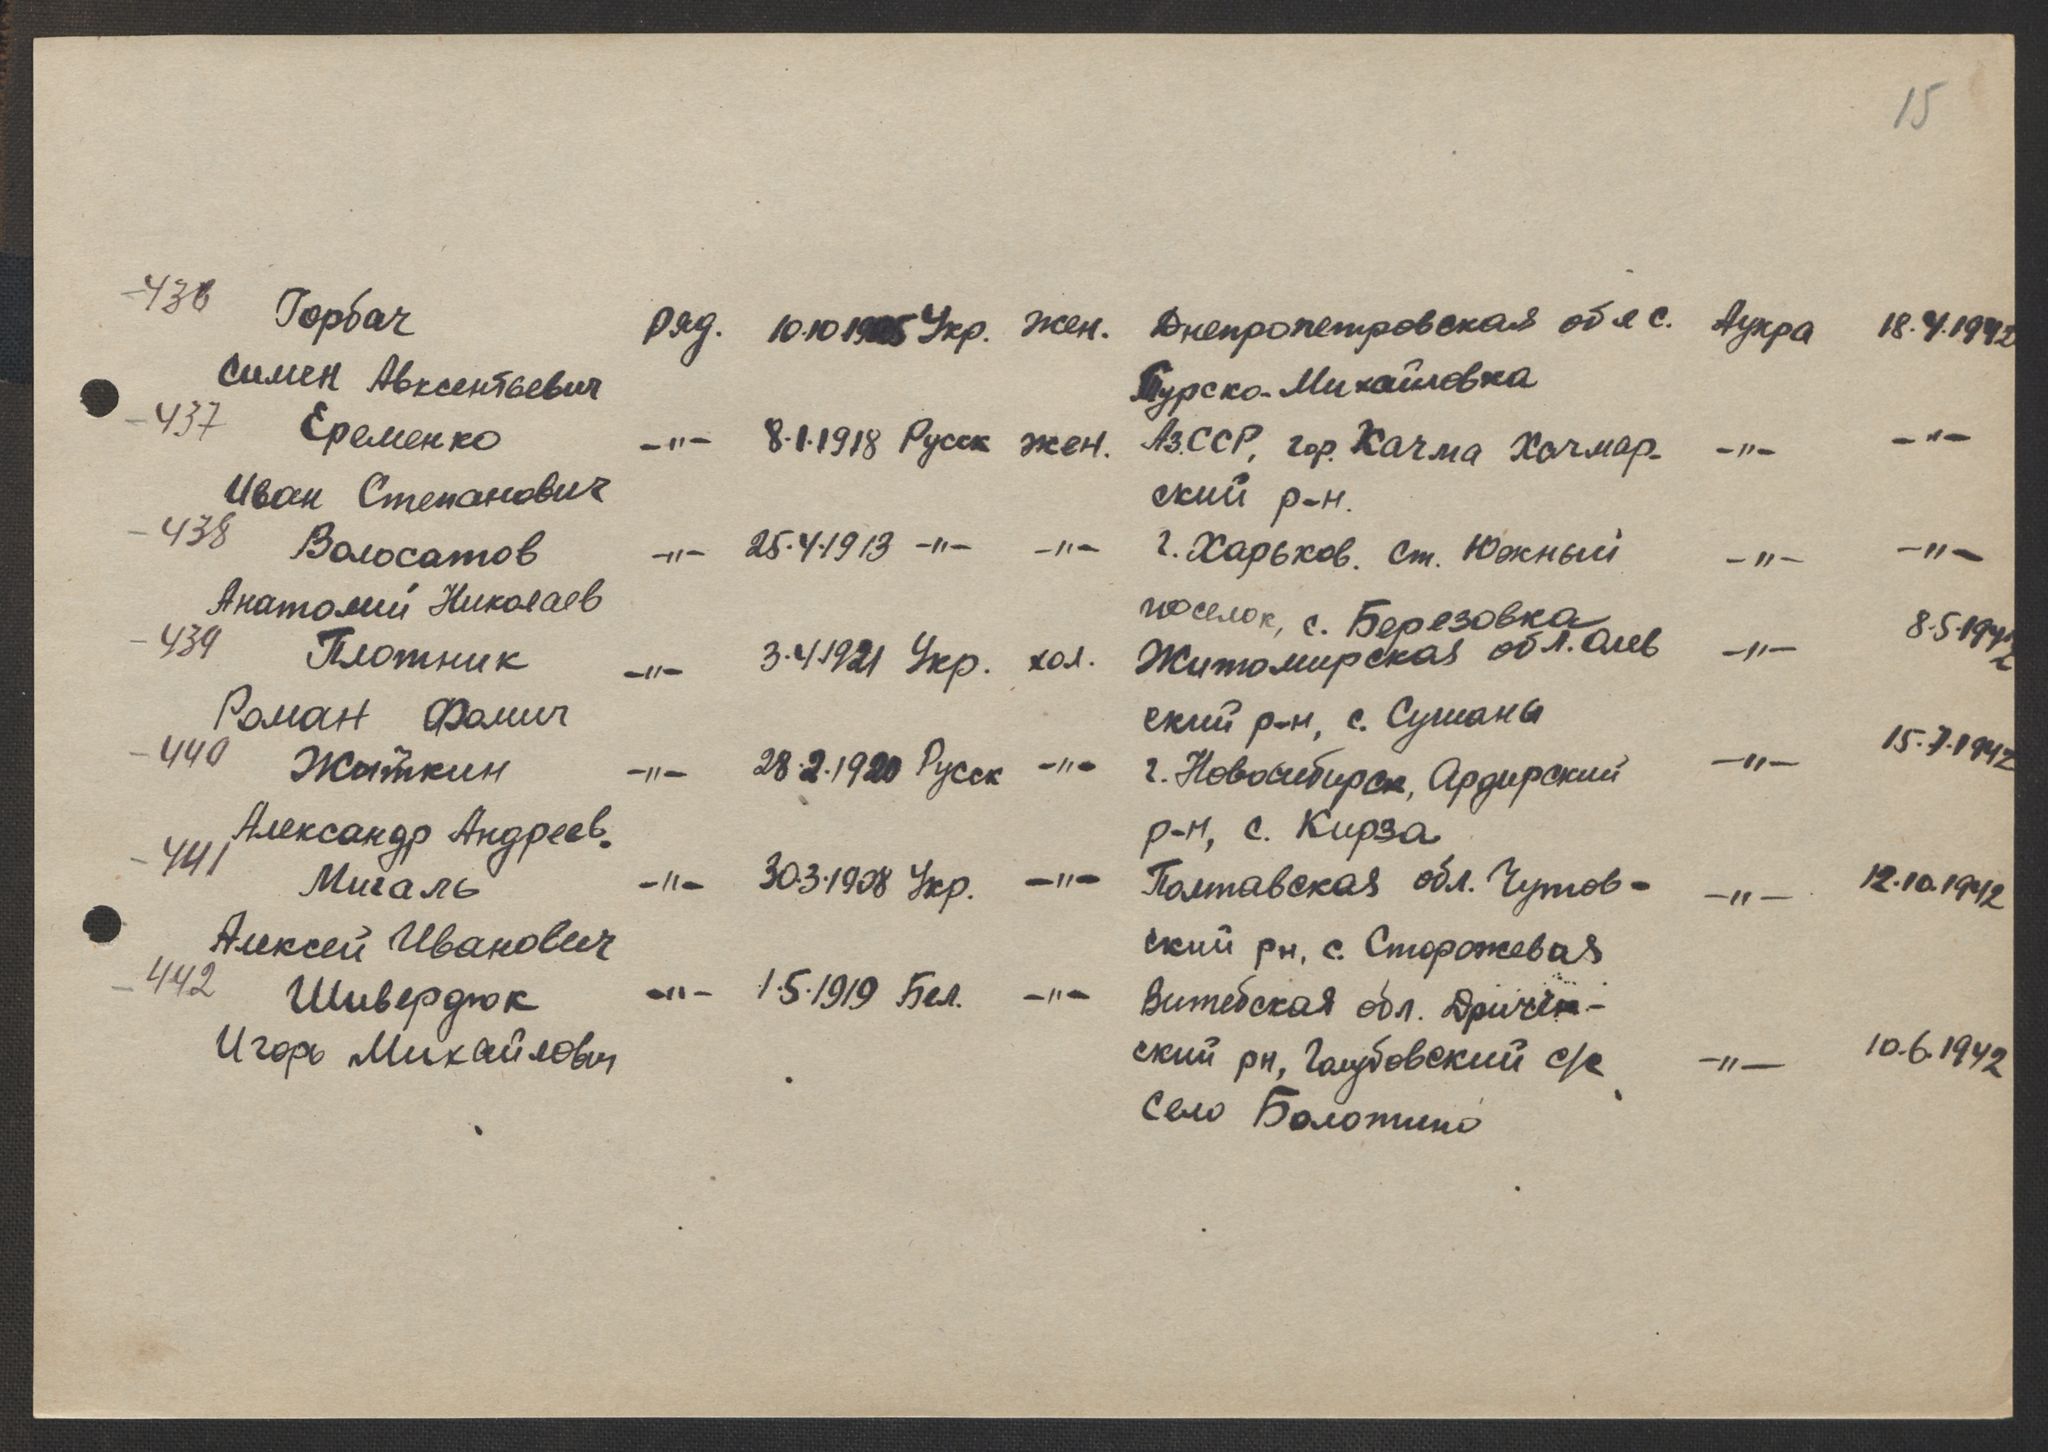 15
436 Горбач ряд. 10.10.1905 Укр. жен. Днепропетровская обл с. Аукра 18.4.1942
Симен Авксентьевич Турско-Михайловка
437 Еременко -"- 8.1.1918 Русск жен. Аз.ССР, гор. Хачма Хачмар- -"- -"-
Иван Степанович ский р-н.
438 Волосатов -"- 25.4.1913 -"- -"- г. Харьков. ст. Южный -"- -"-
Анатолий Николаев поселок, с. Березовка
439 Плотник -"- 3.4.1921 Укр. хол. Житомирская обл. Олев -"- 8.5.1942
Роман Фомич ский р-н, с. Сушаны
440 Житкин -"- 28.2.1920 Русск -"- г. Новосибирск, Ордирский -"- 15.7.1942
Александр Андреев. р-н, с. Кирза
441 Мигаль -"- 30.3.1908 Укр. -"- Полтавская обл. Чутов- -"- 12.10.1942
Алексей Иванович ский рн, с. Сторожевая
442 Шивердюк -"- 1.5.1919 Бел. -"- Витебская обл.
Игорь Михайлович ский рн, Голубовский с/с -"- 10.6.1942
село Болотино